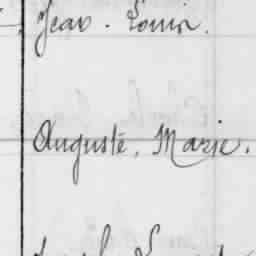 Jean. Louis.
Auguste, Marie.